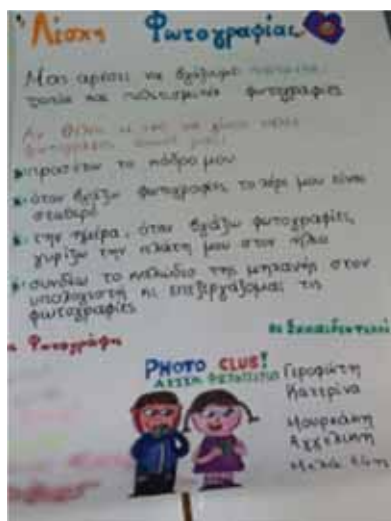 Λέσχη Φωτογραφίας
Μας αρέσει να βγάζουμε
τοπία και φωτογραφίες
Αν θέλεις κι εσύ να γίνεις
προσέχω το κάδρο μου
όταν βγάζω φωτογραφίες το χέρι μου είναι
σταθερό
την ημέρα, όταν βγάζω φωτογραφίες,
γυρίζω την πλάτη μου στον ήλιο
συνδέω το καλώδιο της μηχανής στον
υπολογιστή κι επεξεργάζομαι τις
φωτογραφίες
οι Εκπαιδευτικοί
PHOTO CLUB!
ΛΕΣΧΗ
Γεροφώτη
Κατερίνα
Μουρκάνη
Αγγελική